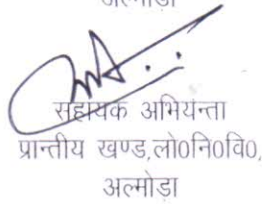 अल्मोड़ा
सहायक अभियन्ता
प्रान्तीय खण्ड,लो0नि0वि0,
अल्मोड़ा